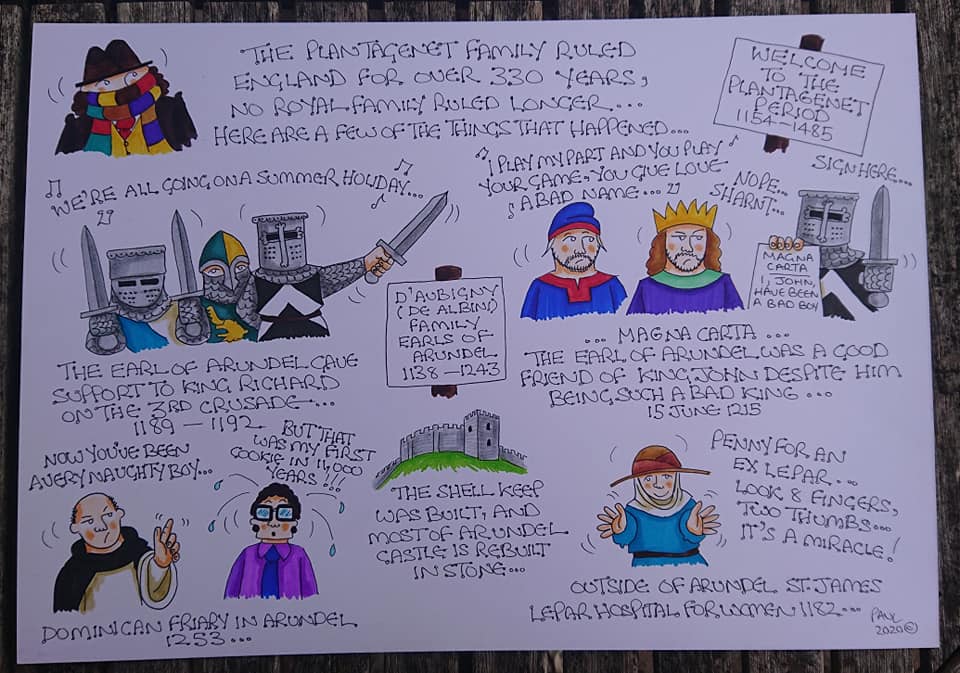 THE PLANTAGENET FAMILY RULED
ENGLAND FOR OVER 330 YEARS,
NO ROYAL FAMILY RULED LONGER...
HERE ARE A FEW OF THE THINGS THAT HAPPENED...
WELCOME
TO THE
PLANTAGENET
PERIOD
1154-1485
WE'RE ALL GOING ON A SUMMER HOLIDAY...
THE EARL OF ARUNDEL GAVE
SUPPORT TO KING RICHARD
ON THE 3RD CRUSADE...
1189 - 1192
I PLAY MY PART AND YOU PLAY
YOUR GAME, YOU GIVE LOVE
A BAD NAME...
NOPE...
SHARNT...
SIGN HERE...
MAGNA
CARTA
I, JOHN,
HAVE BEEN
A BAD BOY
... MAGNA CARTA ...
THE EARL OF ARUNDEL WAS A GOOD
FRIEND OF KING JOHN DESPITE HIM
BEING SUCH A BAD KING...
15 JUNE 1215
D'AUBIGNY
(DE ALBINI)
FAMILY
EARLS OF
ARUNDEL
1138-1243
NOW YOU'VE BEEN
A VERY NAUGHTY BOY...
BUT THAT
WAS MY FIRST
COOKIE IN 14,000
YEARS!!!
DOMINICAN FRIARY IN ARUNDEL
1253...
THE SHELL KEEP
WAS BUILT, AND
MOST OF ARUNDEL
CASTLE IS REBUILT
IN STONE...
PENNY FOR AN
EX LEPAR...
LOOK 8 FINGERS,
TWO THUMBS...
IT'S A MIRACLE!
OUTSIDE OF ARUNDEL ST. JAMES
LEPAR HOSPITAL FOR WOMEN 1182...
PAUL
2020©